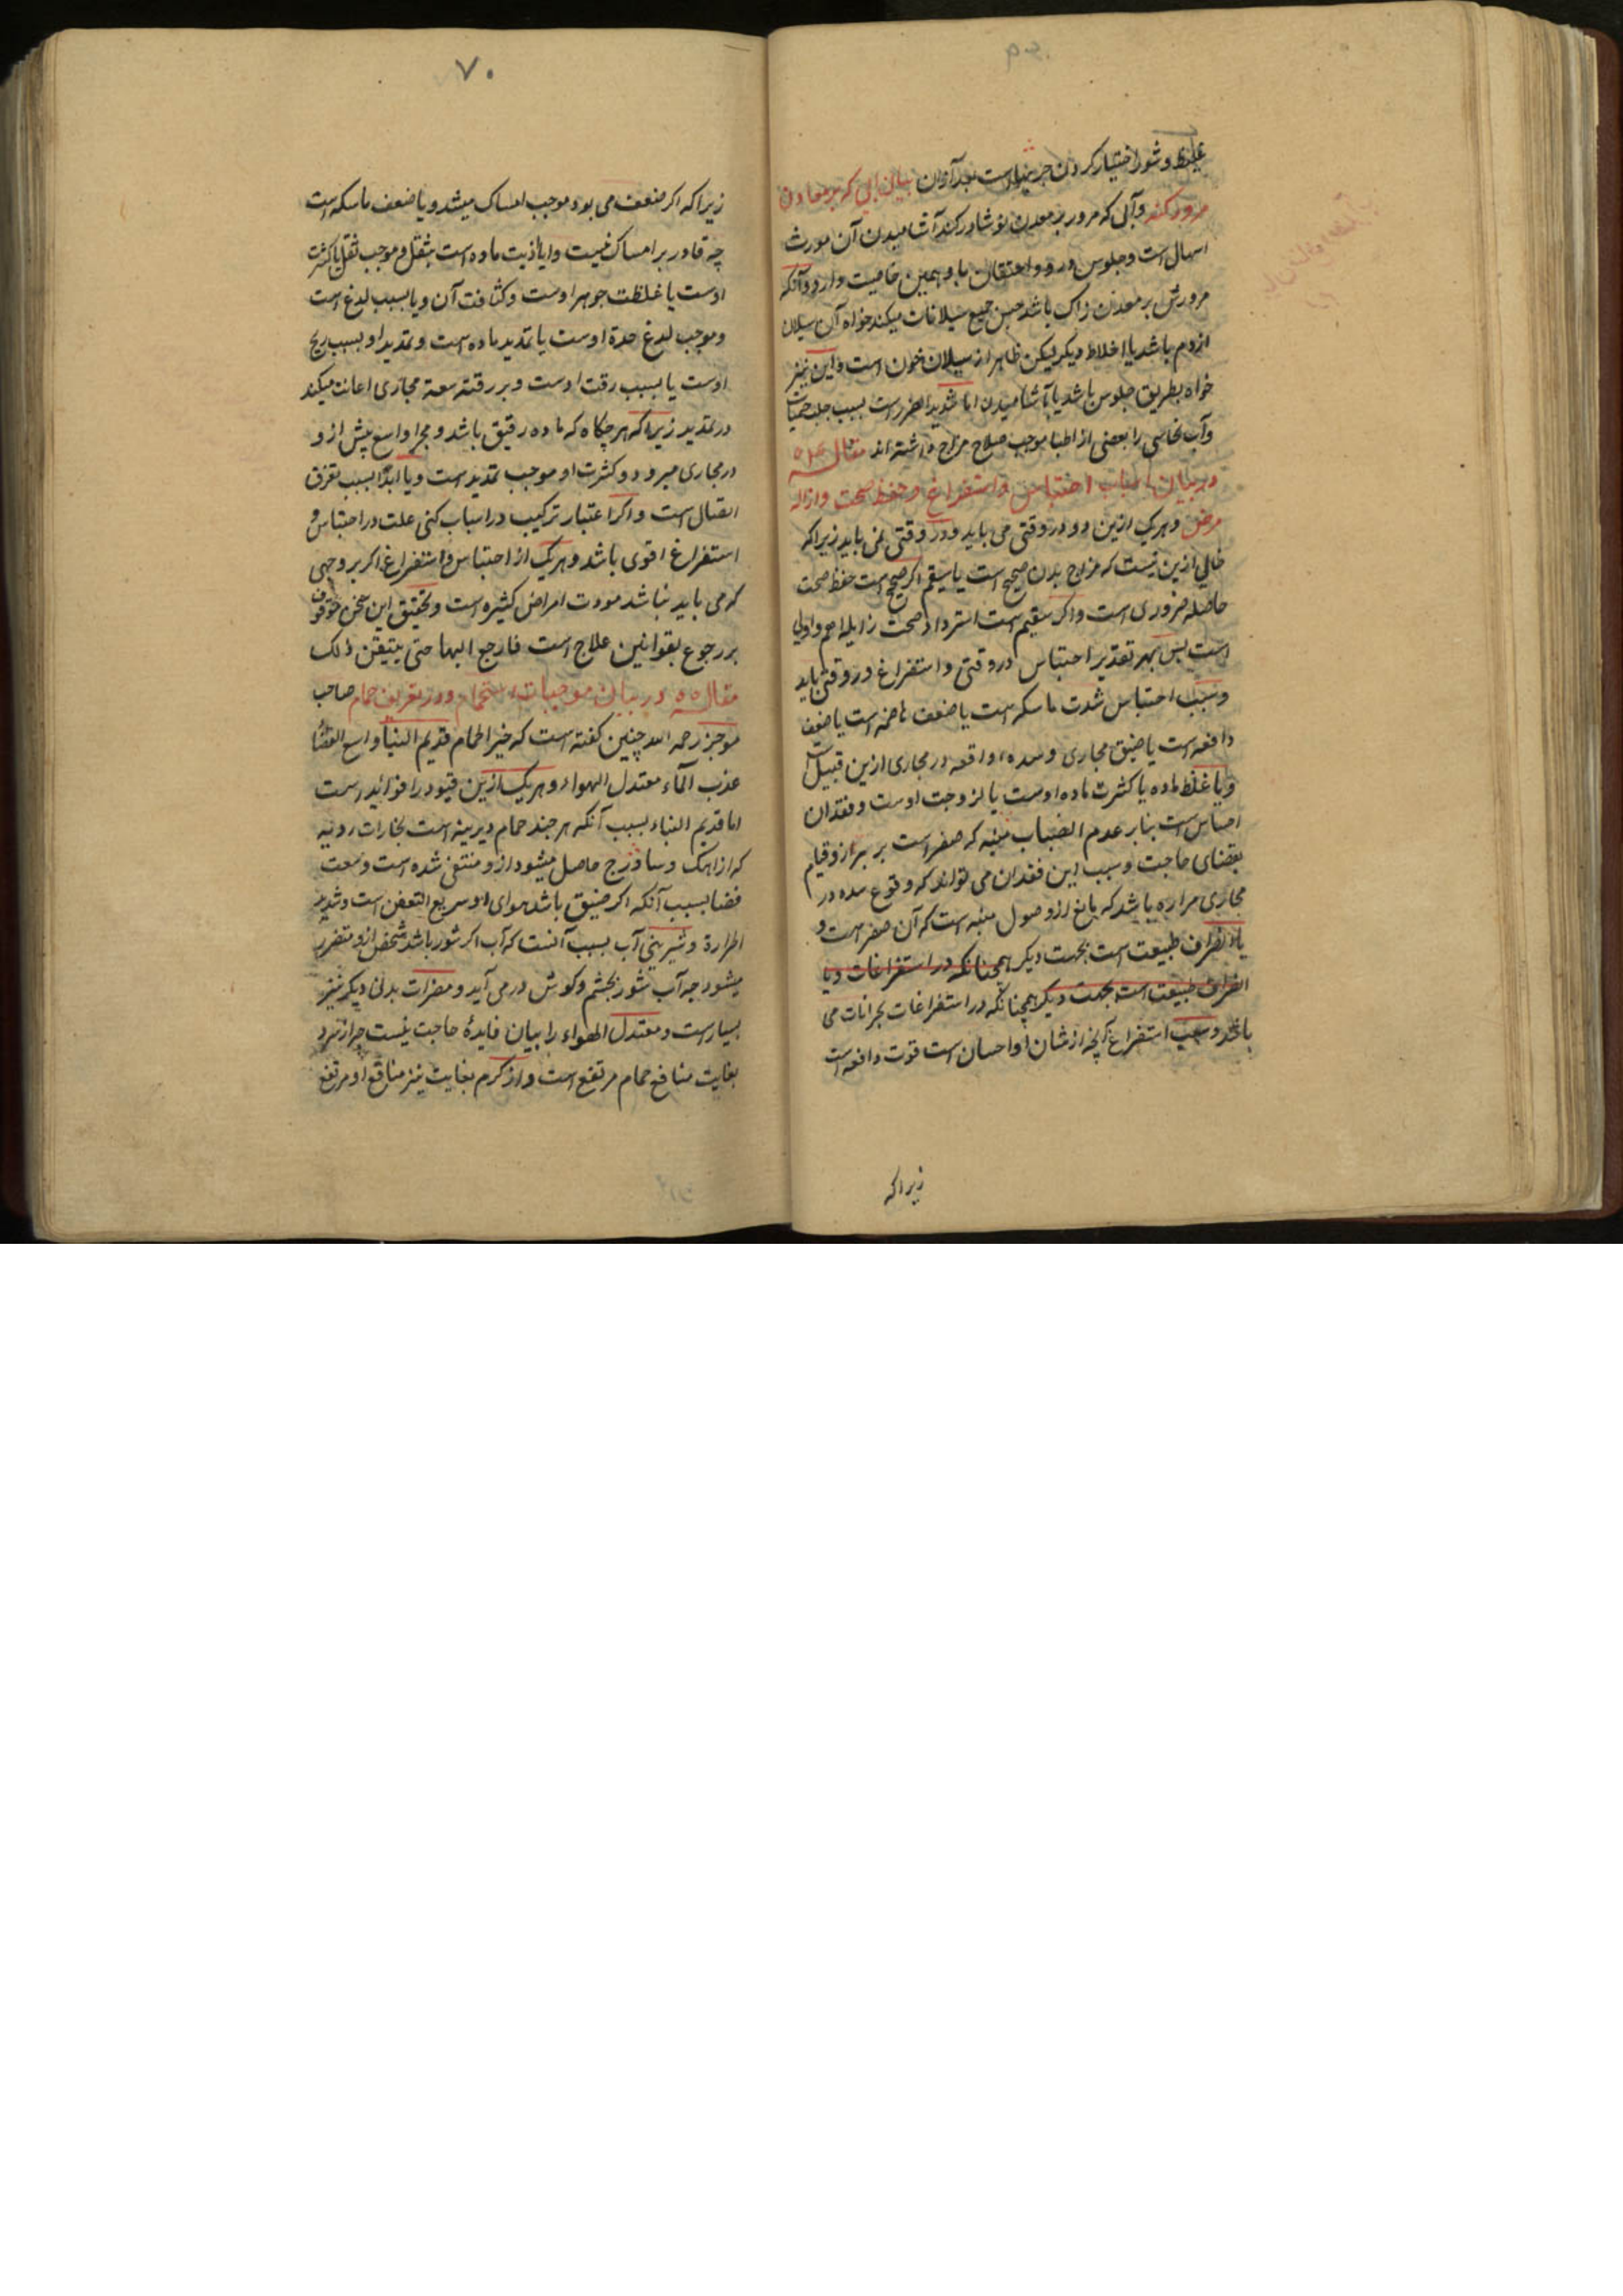 غلیظ و شور اختیار کردن جریند است بعد از آن بیان آبی که بر معادن
مرور کند و آبی که مرور بر معدن نوشادر کند آشامیدن آن مورث
اسهال است و جلوس درو و احتقان باو همین خاصیت دارد و آنکه
مرورش بر معدن زاک باشد حبس جمیع سیلانات میکند خواه آن سیلان
از دم باشد یا اخلاط دیگر لیکن ظاهر از سیلان خون است و این نیز
خواه بطریق جلوس باشد یا آشامیدن اما شدید الضرر است بسبب جلب حمیات
و آب نحاسی را بعضی از اطبا موجب صلاح مزاج داشته اند مقاله
در بیان اسباب احتباس و استفراغ و حفظ صحت و ازاله
مرض و هریک ازین دو در وقتی می باید و در وقتی نمی باید زیرا که
خالی ازین نیست که مزاج بدن صحیح است یا سقیم اگر صحیح است حفظ صحت
حاصله ضروری است و اگر سقیم است استرداد صحت زایله اهم و اولی
است پس بهر تقدیر احتباس در وقتی و استفراغ در وقتی باید
و سبب احتباس شدت ماسکه است یا ضعف هاضمه است یا ضعف
دافعه است یا ضیق مجاری و سده واقعه در مجاری ازین قبیل است
و یا غلظ ماده یا کثرت ماده اوست یا لزوجت اوست و فقدان
احساس است بنابر عدم انصباب منبه که صفر است بر براز و قیام
بقضای حاجت و سبب این فقدان می تواند که وقوع سده در
مجاری مراره باشد که مانع از وصول منبه است که آن صفر است و
یا انصراف طبیعت است بجهت دیگر همچنانکه در استفراغات و یا
انصراف طبیعت است بجهت دیگر همچنانکه در استفراغات بحرانات می
باشد و سبب استفراغ آنچه از شان او احسان است قوت دافعه است
زیرا که
۷۰
زیرا که اگر ضعف می بود موجب امساک میشد و یا ضعف ماسکه است
چه قادر بر امساک نیست و یا اذیت ماده است بثقل و موجب ثقل یا کثرت
اوست یا غلظت جوهر اوست و کثافت آن و یا بسبب لدغ است
و موجب لدغ حدة اوست یا تمدید ماده است و تمدید او بسبب ریح
اوست یا بسبب رقت اوست و بر رقت سعة مجاری اعانت میکند
در تمدید زیرا که هر چکاه که ماده رقیق باشد و مجرا واسع پیش ازو
در مجاری میرود و کثرت او موجب تمدید است و یا ابدا بسبب تفرق
اتصال است و اگر اعتبار ترکیب در اسباب کنی علت در احتباس و
استفراغ اقوی باشد و هریک از احتباس و استفراغ اگر بر وجهی
که می باید نباشد مورث امراض کثیره است و تحقیق این سخن موقوف
بر رجوع بقوانین علاج است فارجع الیها حتی یتیقن ذلک
مقاله ۵۵ در بیان موجبات استحمام و در تعریف حمام صاحب
موجز رحمه الله چنین گفته است که خیر الحمام قدیم البنا واسع الفضا
عذب الماء معتدل الهواء و هریک ازین قیود را فواید است
اما قدیم البناء بسبب آنکه هر چند حمام دیرینه است بخارات ردیه
که از اهک و ساذرج حاصل میشود ازو منتفی شده است و سعت
فضا بسبب آنکه اگر ضیق باشد هوای او سریع التعفن است و شدید
الحرارة و شیرینی آب بسبب آنست که آب اگر شور باشد شخص ازو متضرر
میشود چه آب شور بچشم و گوش در می آید و مضرات بدنی دیگر نیز
بسیار است و معتدل الهواء را بیان فایدهٔ حاجت نیست چه از سرد
بغایت منافع حمام مرتفع است و از گرم بغایت نیز منافع او مرتفع